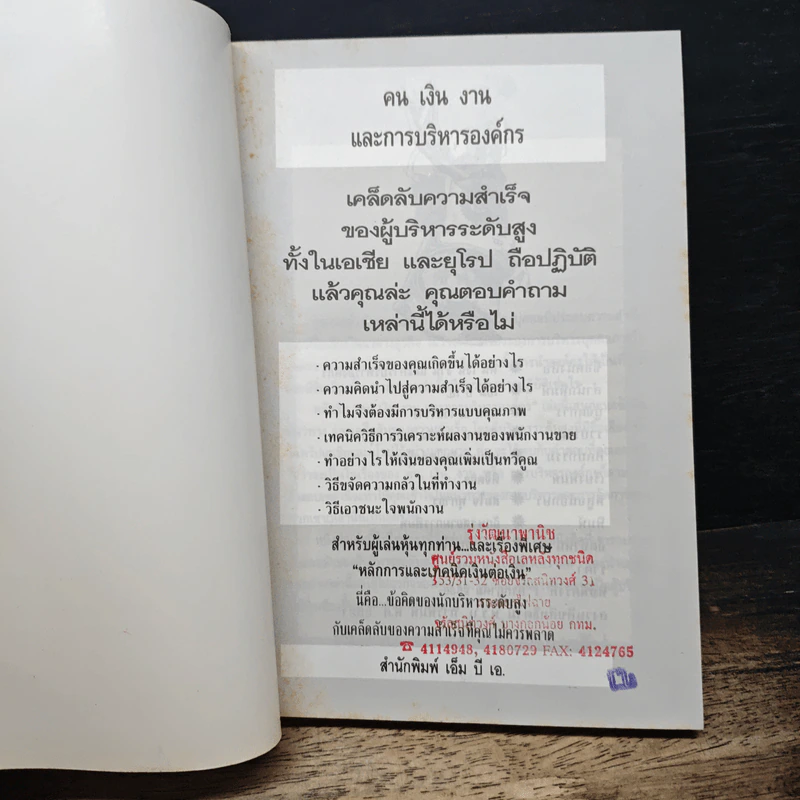 คน เงิน งาน
และการบริหารองค์กร
เคล็ดลับความสำเร็จ
ของผู้บริหารระดับสูง
ทั้งในเอเชีย และยุโรป ถือปฏิบัติ
แล้วคุณล่ะ คุณตอบคำถาม
เหล่านี้ได้หรือไม่
· ความสำเร็จของคุณเกิดขึ้นได้อย่างไร
· ความคิดนำไปสู่ความสำเร็จได้อย่างไร
· ทำไมจึงต้องมีการบริหารแบบคุณภาพ
· เทคนิควิธีการวิเคราะห์ผลงานของพนักงานขาย
· ทำอย่างไรให้เงินของคุณเพิ่มเป็นทวีคูณ
· วิธีขจัดความกลัวในที่ทำงาน
· วิธีเอาชนะใจพนักงาน
รุ่งวัฒนาพานิช
สำหรับผู้เล่นหุ้นทุกท่าน...และเรื่องพิเศษ
ศูนย์รวมหนังสือเลหลังทุกชนิด
"หลักการและเทคนิคเงินต่อเงิน"
นี่คือ...ข้อคิดของนักบริหารระดับสูง
บางกอกน้อย กทม.
กับเคล็ดลับของความสำเร็จที่คุณไม่ควรพลาด
☎ 4114948, 4180729 FAX: 4124765
สำนักพิมพ์ เอ็ม บี เอ.